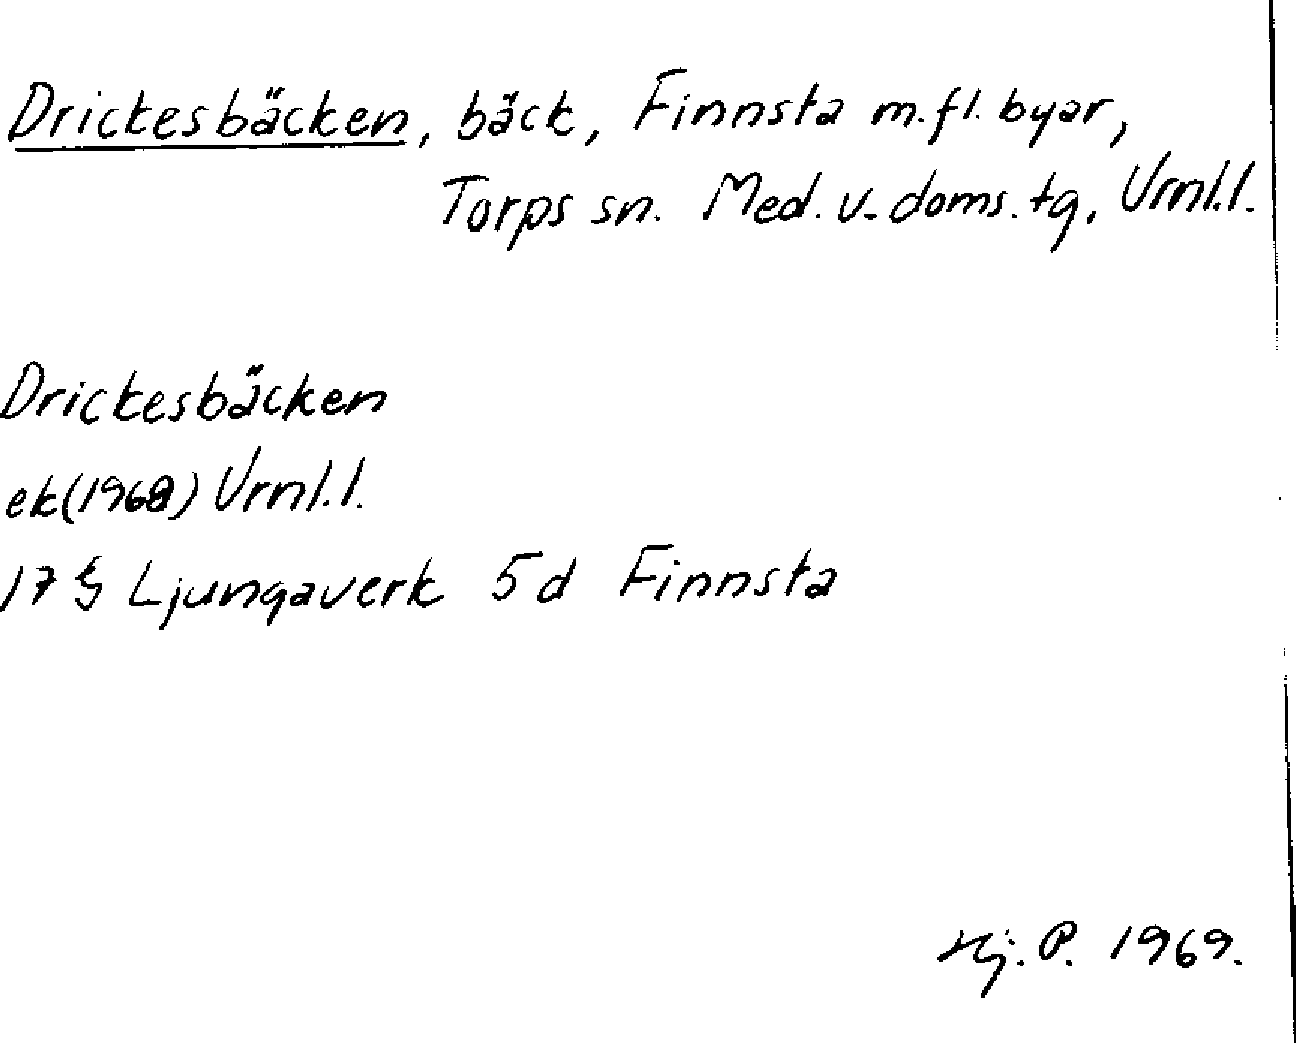 Drickesbäcken, bäck, Finnsta m.fl. byar,
Torps sn. Med. v. doms. tg, Vrnl.l.
Drickesbäcken
ek(1968) Vrnl.l.
17 G Ljungaverk 5d Finnsta
Hj. P. 1969.